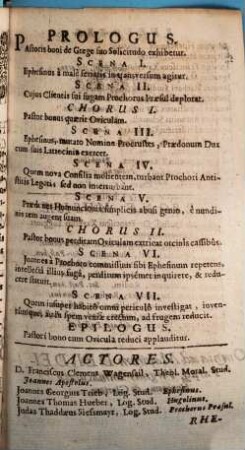 PROLOGUS.
Pastoris boni de Grege suo Solicitudo exhibetur.
SCENA I.
Ephesinus à malè feriatis in transversum agitur.
SCENA II.
Cujus Clientis sui fugam Prochorus Præsul deplorat.
CHORUS I.
Pastor bonus quærit Oviculam.
SCENA III.
Ephesinus, mutato Nomine Procrustes, Prædonum Dux
cum suis Latrocinia exercet.
SCENA IV.
Quem nova Consilia molientem, turbant Prochori Anti-
stitis Legati sed non interturbant.
SCENA V.
Homuncionis simplicis abusi genio, è nundi-
nis rem augent suam.
CHORUS II.
Pastor bonus perditam Oviculam extricat orcinis cassibus.
SCENA VI.
Joannes à Prochoro commissum sibi Ephesinum repetens,
intellectâ illius fugâ, perditum ipsemet inquirere, & redu-
cere statuit.
SCENA VII.
Quem insuper habito omni periculo investigat, inven-
tumque, ad spem veniæ erectum, ad frugem reducit.
EPILOGUS.
Pastori bono cum Ovicula reduci applauditur.
ACTORES.
D. Franciscus Clemens Wagensail, Theol. Moral. Stud.
Joannes Apostolus.
Joannes Georgius Trieb, Log. Stud. Ephesinus.
Joannes Thomas Hueber, Log. Stud. Hugolinus.
Judas Thaddæus Siessmayr, Log. Stud. Prochorus Præsul.
RHE-